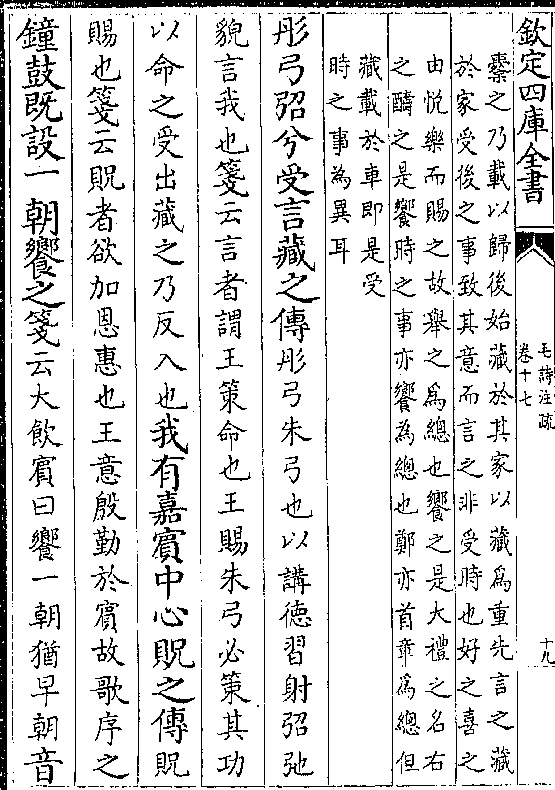 欽定四庫全書
毛詩注疏
卷十七
十九
櫜之乃載以歸後始藏於其家以藏為重先言之藏
於家受後之事致其意而言之非受時也好之喜之
由悦樂而賜之故舉之為總也饗之是大禮之名右
之醻之是饗時之事亦饗為總也鄭亦首章為總但
藏載於車即是受
時之事為異耳
彤弓弨兮受言藏之傳彤弓朱弓也以講德習射弨弛
貌言我也箋云言者謂王策命也王賜朱弓必策其功
以命之受出藏之乃反入也我有嘉賓中心貺之傳貺
賜也箋云貺者欲加恩惠也王意殷勤於賓故歌序之
鐘鼓既設一朝饗之箋云大飲賓曰饗一朝猶早朝音